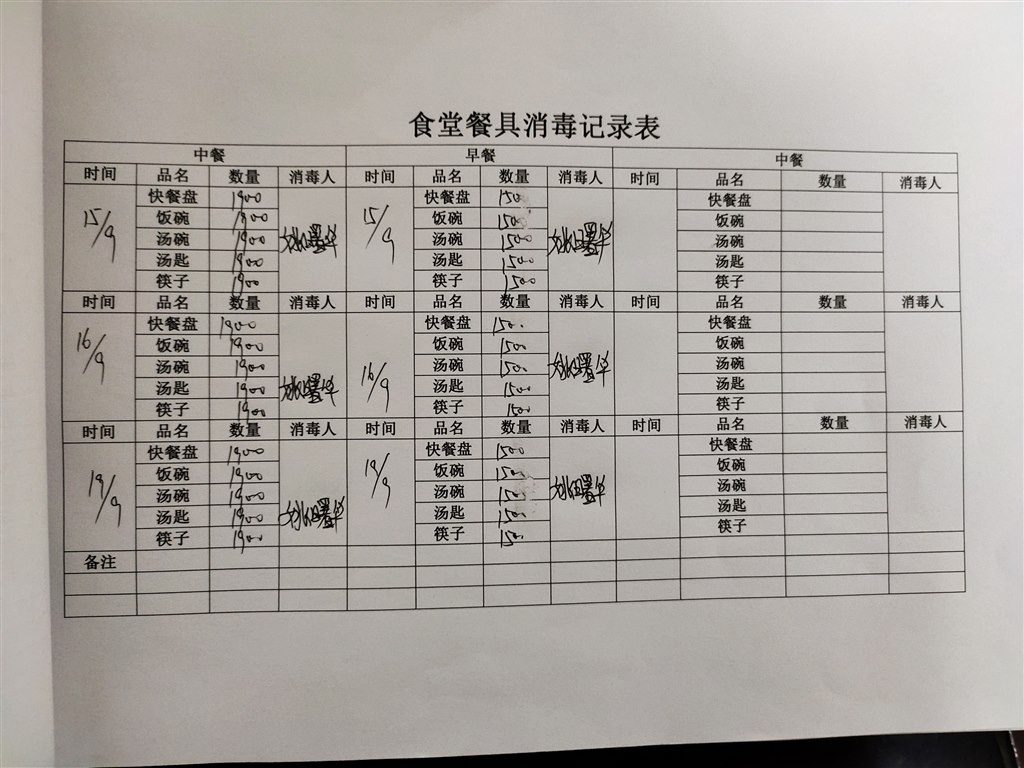 食堂餐具消毒记录表
中餐 早餐 中餐
时间 品名 数量 消毒人 时间 品名 数量 消毒人 时间 品名 数量 消毒人
15/9 快餐盘 1900 15/9 快餐盘 1500 快餐盘
饭碗 1800 饭碗 1500 饭碗
汤碗 1900 汤碗 1500 汤碗
汤匙 1900 汤匙 1500 汤匙
筷子 1900 筷子 1500 筷子
时间 品名 数量 消毒人 时间 品名 数量 消毒人 时间 品名 数量 消毒人
16/9 快餐盘 1900 16/9 快餐盘 快餐盘
饭碗 1900 饭碗 1500 饭碗
汤碗 1900 汤碗 1500 汤碗
汤匙 1900 汤匙 1500 汤匙
筷子 1900 筷子 1500 筷子
时间 品名 数量 消毒人 时间 品名 数量 消毒人 时间 品名 数量 消毒人
19/9 快餐盘 1900 19/9 快餐盘 1500 快餐盘
饭碗 1900 饭碗 1500 饭碗
汤碗 1900 汤碗 1500 汤碗
汤匙 1900 汤匙 1500 汤匙
筷子 1900 筷子 1500 筷子
备注